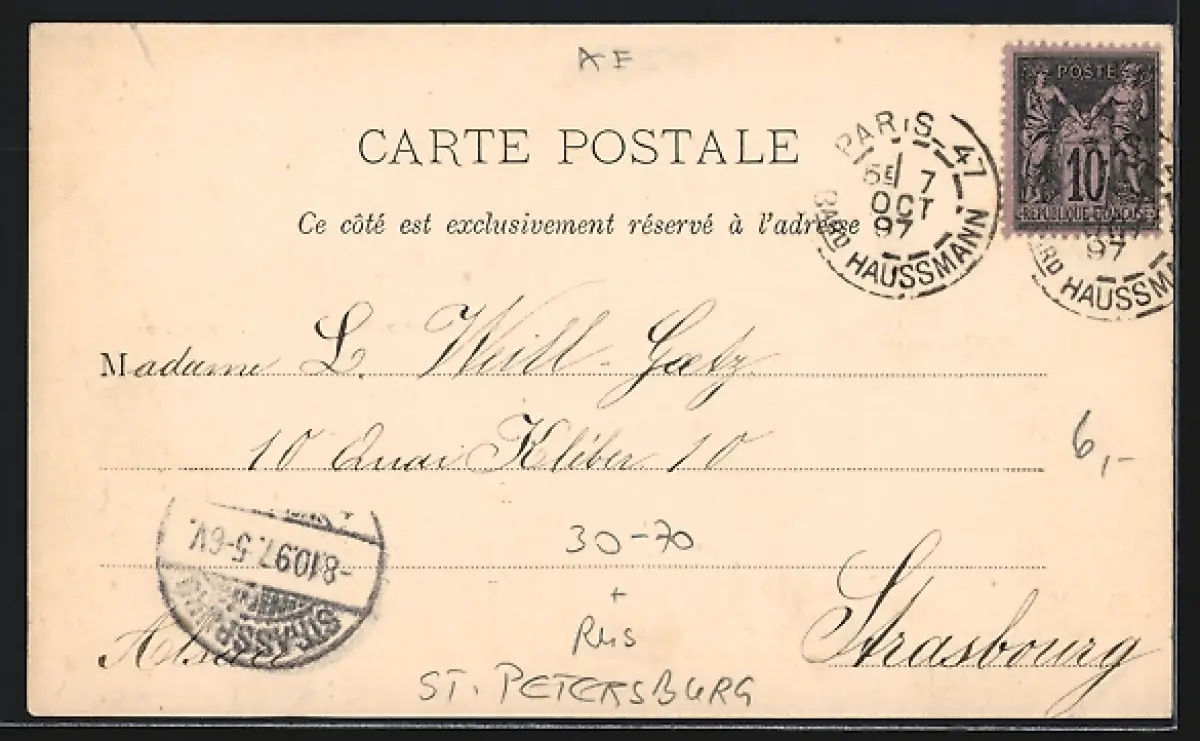 AF
POSTE
10
REPUBLIQUE FRANÇAISE
CARTE POSTALE
PARIS 47
5E 7
OCT
97
BARD HAUSSMANN
97
BARD HAUSSMA
Ce côté est exclusivement réservé à l'adresse
Madame L. Weill-Goetz
10 Quai Kléber 10
6,-
-8.10.97.5-6V.
STRASSB
30-70
+
Rus
Alsace
Strasbourg
ST. PETERSBURG